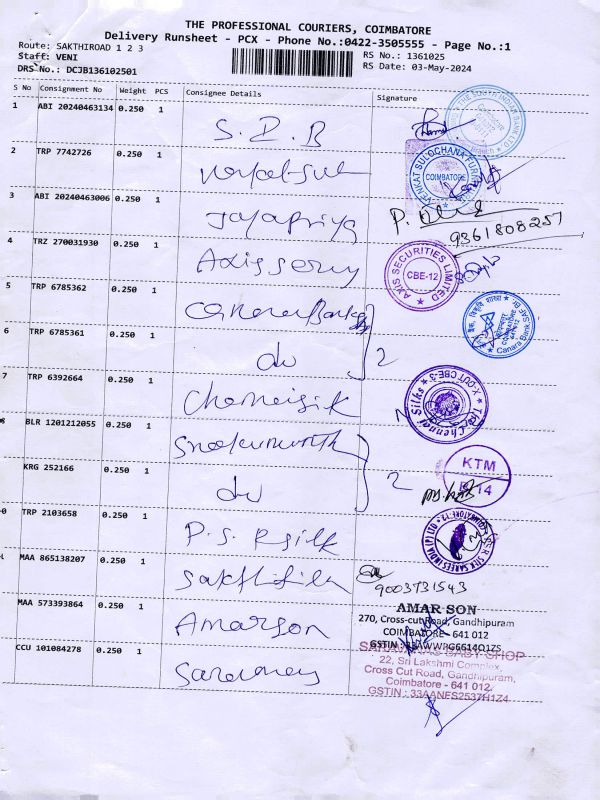 THE PROFESSIONAL COURIERS, COIMBATORE
Delivery Runsheet - PCX - Phone No.:0422-3505555 - Page No.:1
Route: SAKTHIROAD 1 2 3
RS No.: 1361025
Staff: VENI
RS Date: 03-May-2024
DRS No.: DCJB136102501
S No Consignment No Weight PCS Consignee Details Signature
1 ABI 20240463134 0.250 1
S. D. B
2 TRP 7742726 0.250 1
VENKAT SULOCHANA FURNI
COIMBATORE
3 ABI 20240463006 0.250 1
Jayapriya
P.
9361808257
4 TRZ 270031930 0.250 1
Axis
AXIS SECURITIES LIMITED
CBE-12
5 TRP 6785362 0.250 1
Canara Bank
Canara Bank
6 TRP 6785361 0.250 1
do
2
7 TRP 6392664 0.250 1
The Chennai Silks
X-CUT CBE-3
8 BLR 1201212055 0.250 1
KRG 252166 0.250 1
do
2
KTM
14
0 TRP 2103658 0.250 1
P. S. R silk
S.R SILK SAREES INDIA (P) LTD
COIMBATORE-12
MAA 865138207 0.250 1
9003731543
MAA 573393864 0.250 1
Amarson
AMAR SON
270, Cross-cut Road, Gandhipuram
COIMBATORE - 641 012
CCU 101084278 0.250 1
BABY SHOP
22, Sri Lakshmi Complex,
Cross Cut Road, Gandhipuram,
Coimbatore - 641 012.
GSTIN : 33AANES2537H1Z4